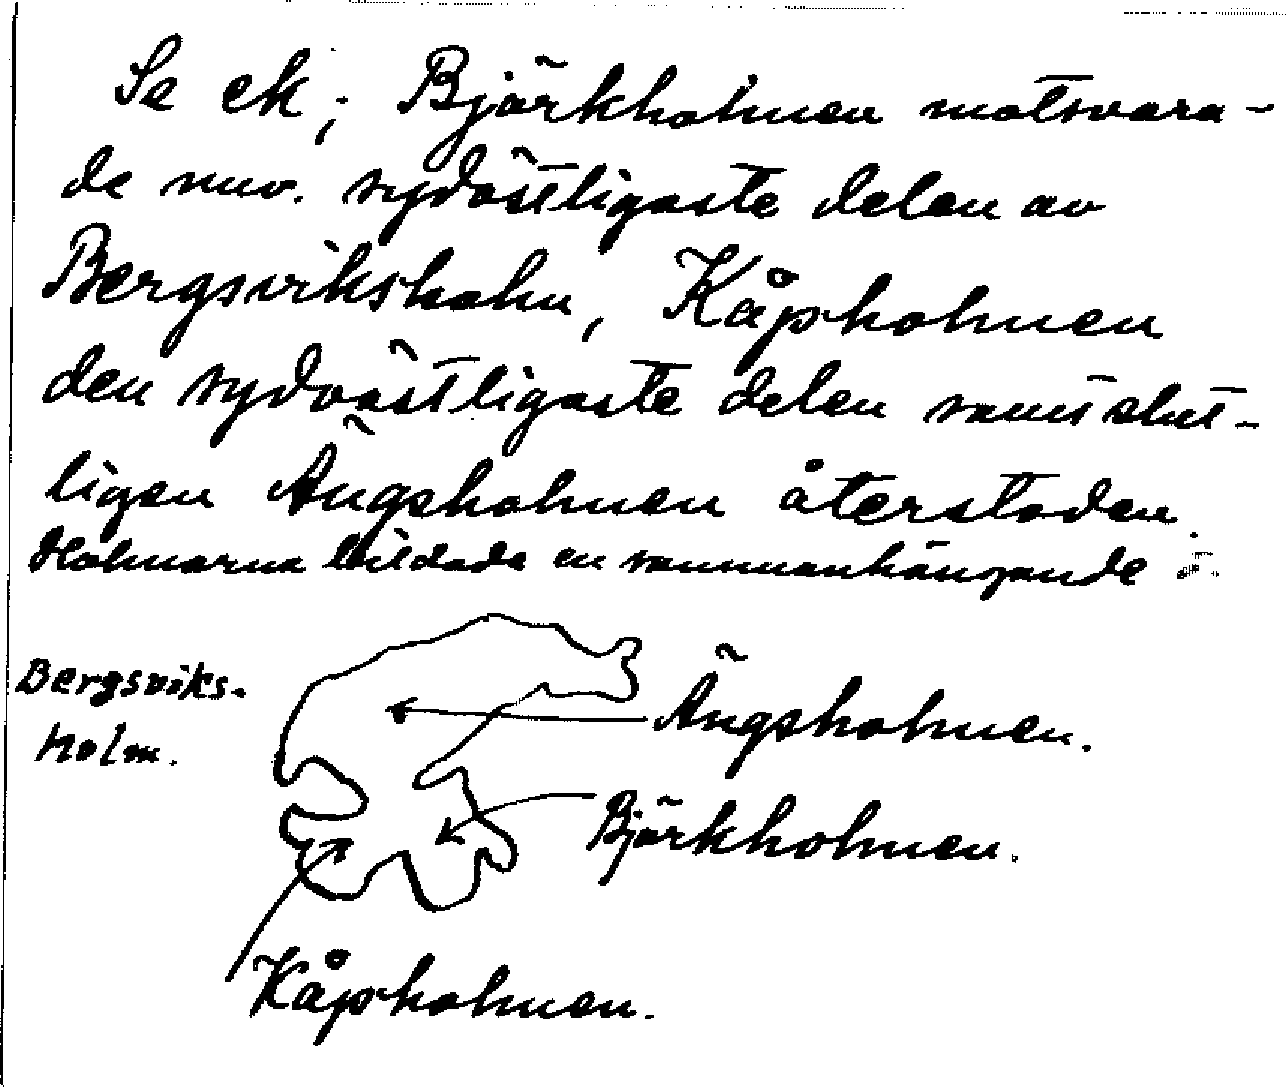 Se ek; Björkholmen motsvara-
de nuv. sydöstligaste delen av
Bergsviksholm, Kåpholmen
den sydvästligaste delen samt slut-
ligen Ängsholmen återstoden.
Holmarna bildade en sammanhängande
Bergsviks-
holm.
Ängsholmen.
Björkholmen.
Kåpholmen.